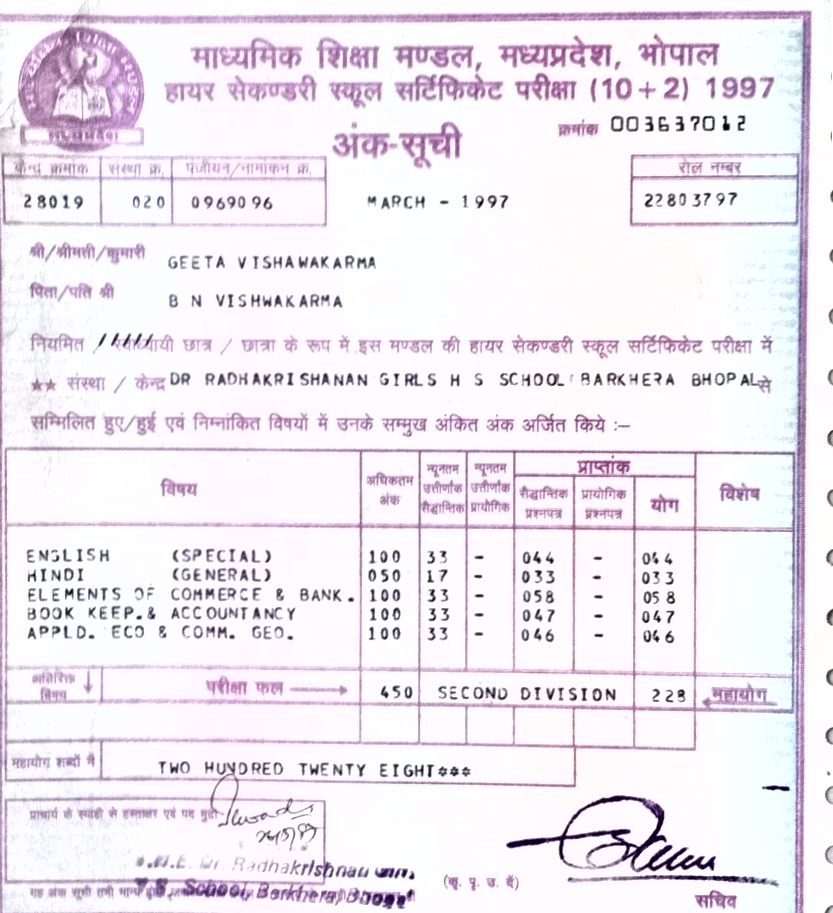 माध्यमिक शिक्षा मण्डल, मध्यप्रदेश, भोपाल
हायर सेकण्डरी स्कूल सर्टिफिकेट परीक्षा (10+2) 1997
मध्यप्रदेश
अंक-सूची
क्रमांक 003637012
केन्द्र क्रमांक संस्था क्र. पंजीयन/नामांकन क्र. रोल नम्बर
28019 020 0969096 MARCH - 1997 22803797
श्री/श्रीमती/कुमारी GEETA VISHAWAKARMA
पिता/पति श्री B N VISHWAKARMA
नियमित / छात्र / छात्रा के रूप में इस मण्डल की हायर सेकण्डरी स्कूल सर्टिफिकेट परीक्षा में
★★ संस्था / केन्द्र DR RADHAKRISHANAN GIRLS H S SCHOOL BARKHERA BHOPAL से
सम्मिलित हुए/हुई एवं निम्नांकित विषयों में उनके सम्मुख अंकित अंक अर्जित किये :–
विषय अधिकतम अंक न्यूनतम उत्तीर्णांक सैद्धान्तिक न्यूनतम उत्तीर्णांक प्रायोगिक प्राप्तांक विशेष
सैद्धान्तिक प्रश्नपत्र प्रायोगिक प्रश्नपत्र योग
ENGLISH (SPECIAL) 100 33 - 044 - 044
HINDI (GENERAL) 050 17 - 033 - 033
ELEMENTS OF COMMERCE & BANK. 100 33 - 058 - 058
BOOK KEEP.& ACCOUNTANCY 100 33 - 047 - 047
APPLD. ECO & COMM. GEO. 100 33 - 046 - 046
अतिरिक्त विषय परीक्षा फल 450 SECOND DIVISION 228 महायोग
महायोग शब्दों में TWO HUNDRED TWENTY EIGHT***
प्राचार्य के स्याही से हस्ताक्षर एवं पद मुद्रा
Dr. Radhakrishnan
School, Barkhera, Bhopal
(कृ. पृ. उ. दें)
सचिव